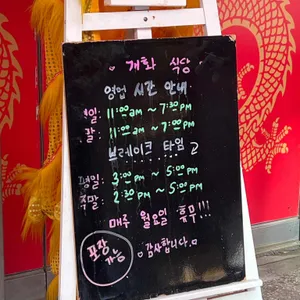 개화 식당
영업 시간 안내
일: 11:00 am ~ 7:30 PM
말: 11:00 am ~ 7:00 PM
브레이크 타임
평일: 3:00 PM ~ 5:00 PM
주말: 2:30 PM ~ 5:00 PM
매주 월요일 휴무!!!
포장 가능
감사합니다.